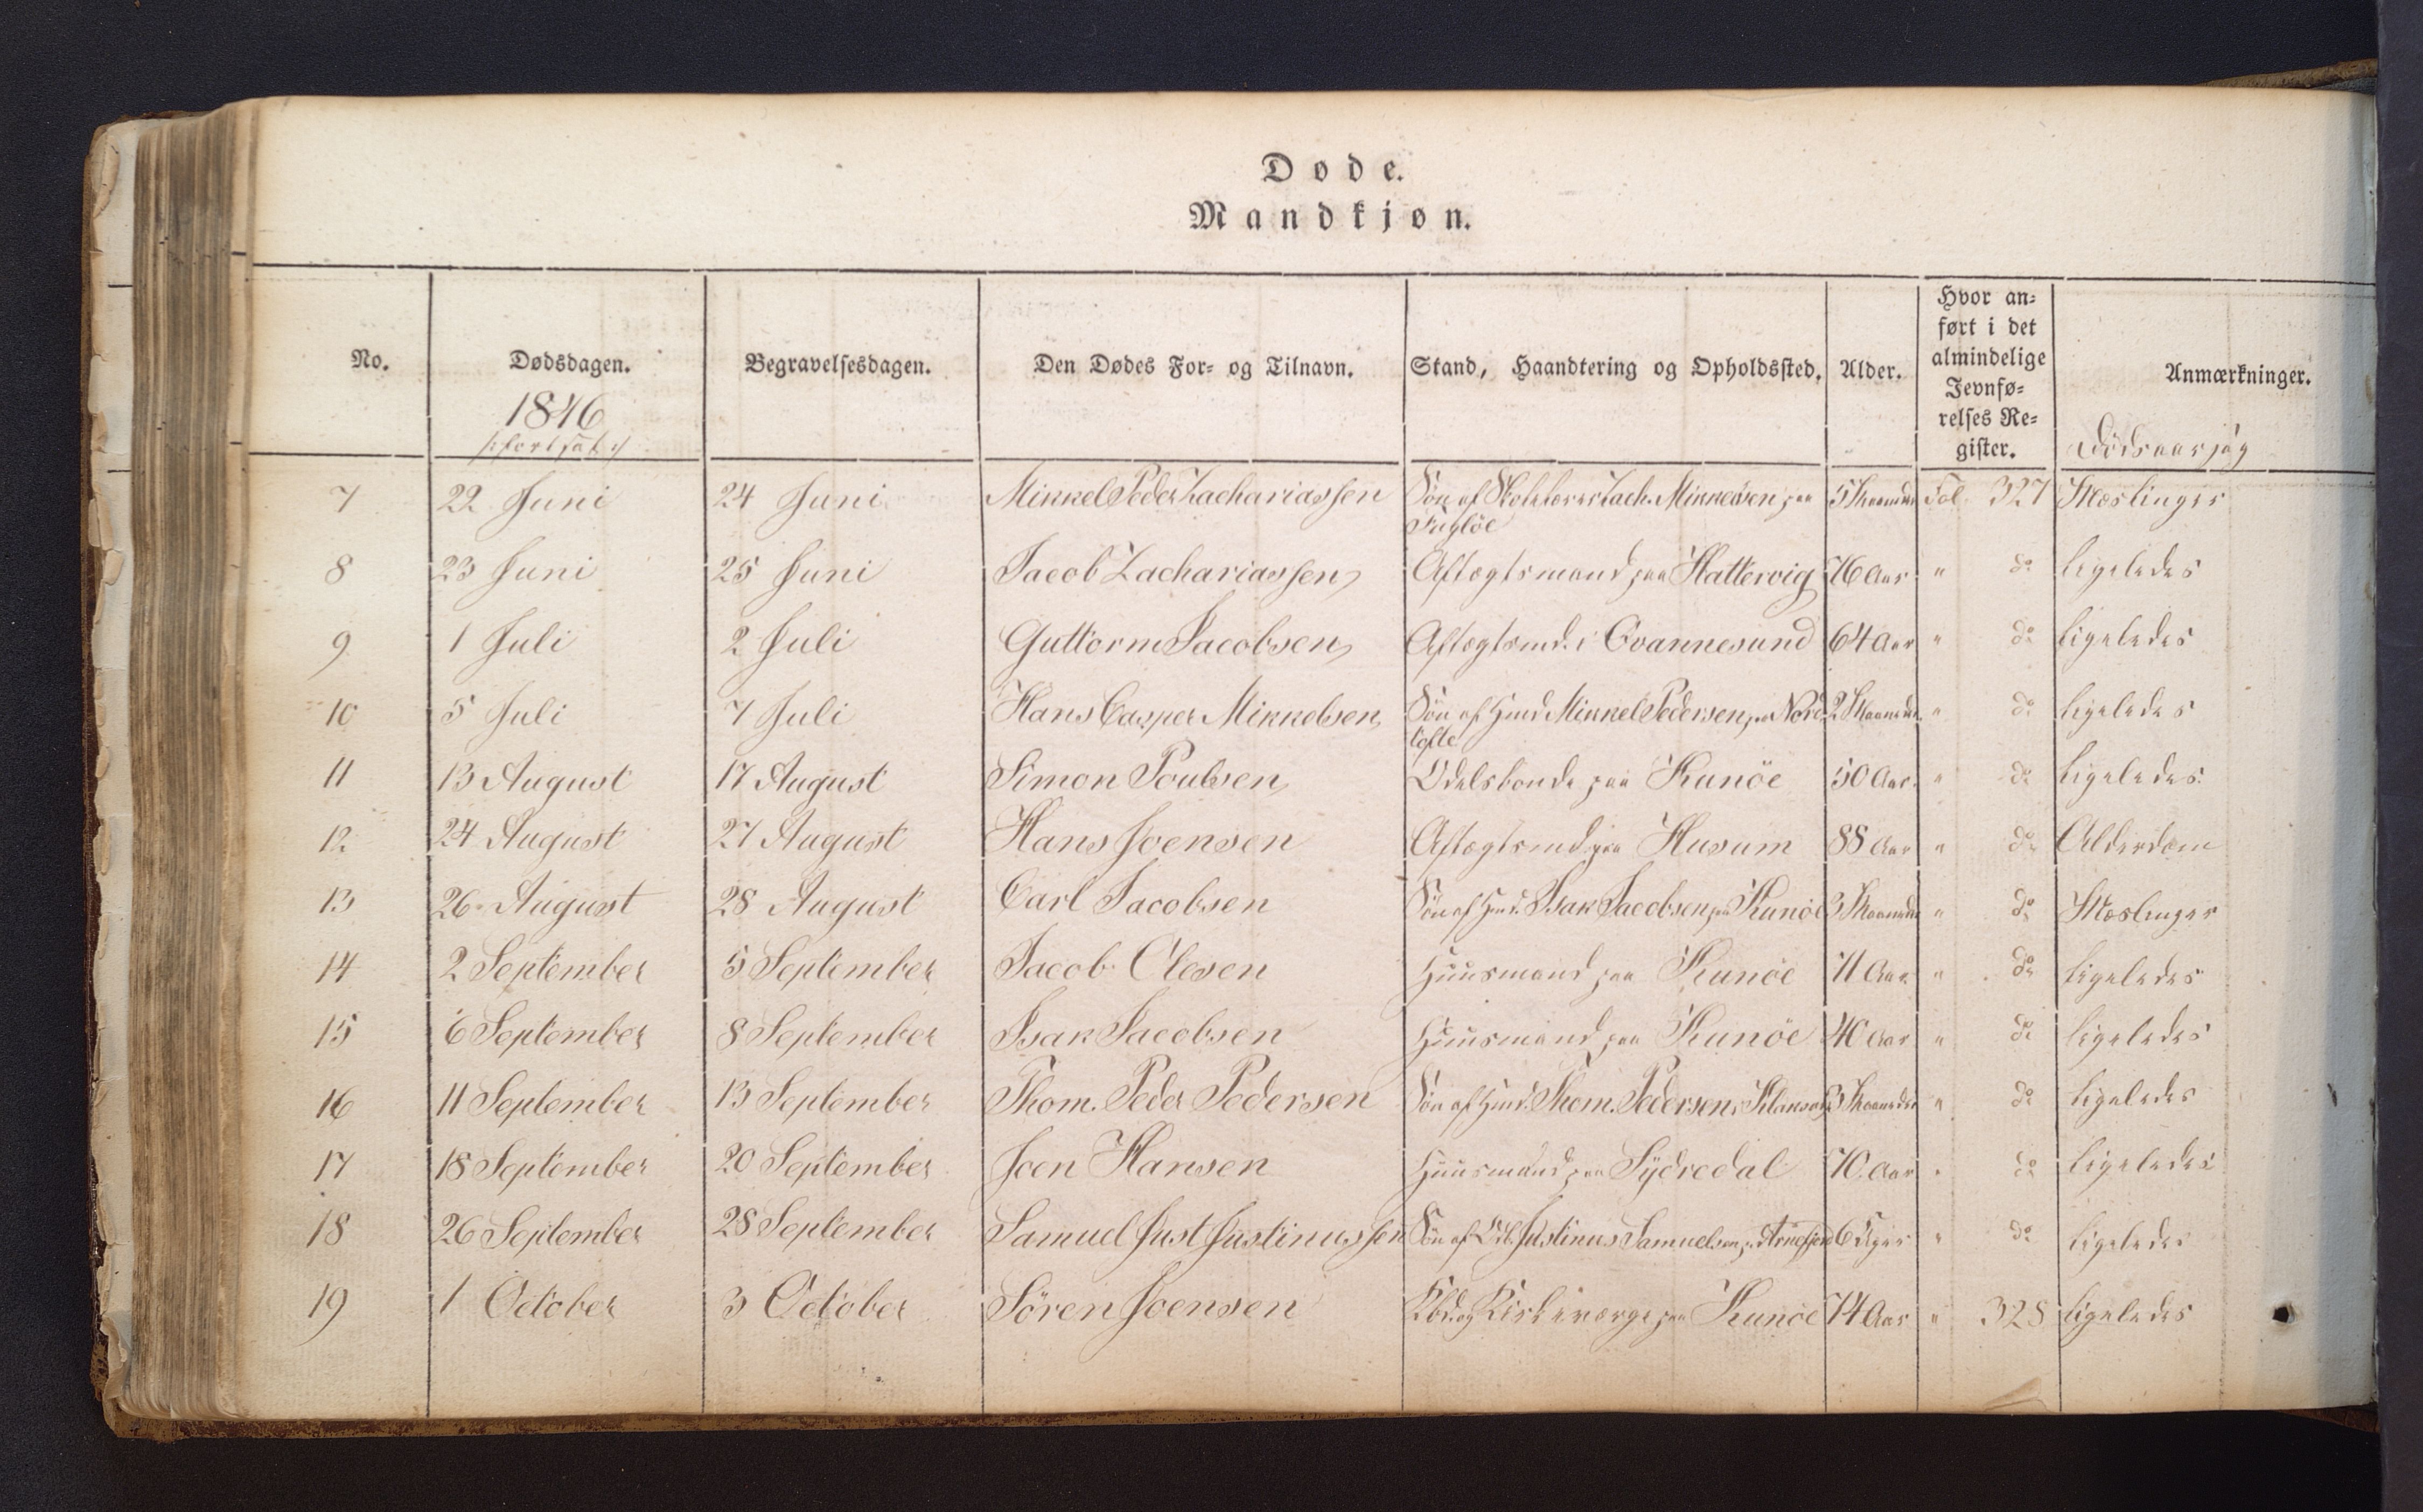 Døde.
Mandkjøn.
No. Dødsdagen. Begravelsesdagen. Den Dødes For- og Tilnavn. Stand, Haandtering og Opholdssted. Alder. Hvor an-
ført i det
almindelige
Jevnfø-
relses Re-
gister. Anmærkninger.
1846
/: fortsat :/ Dødsaarsag
7 22 Juni 24 Juni Mikkel Peder Zachariassen Søn af Skolelærer Zach. Mikkelsen paa 5 Maaneder Fol. 327 Mæslinger
Fugløe
8 23 Juni 25 Juni Jacob Zachariassen Aftægtsmand paa Hattervig 76 Aar " do ligeledes
9 1 Juli 2 Juli Guttorm Jacobsen Aftægtsmd. i Qvannesund 64 Aar " do ligeledes
10 5 Juli 7 Juli Hans Casper Mikkelsen Søn af Hmd Mikkel Pedersen paa Nord- 2 Maaneder " do ligeledes
tofte
11 13 August 17 August Simon Poulsen Odelsbonde paa Kunöe 50 Aar " do ligeledes
12 24 August 27 August Hans Joensen Aftægtsmd paa Husum 88 Aar " do Alderdom
13 26 August 28 August Carl Jacobsen Søn af Hmd. Isak Jacobsen paa Kunöe 3 Maaneder " do Mæslinger
14 2 September 5 September Jacob Olesen Huusmand paa Kunöe 71 Aar " do ligeledes
15 6 September 8 September Isak Jacobsen Huusmand paa Kunöe 40 Aar " do ligeledes
16 11 September 13 September Thom. Peder Pedersen Søn af Hmd. Thom. Pedersen i Klaksvig 3 Maaneder " do ligeledes
17 18 September 20 September Joen Hansen Huusmand paa Sydredal 70 Aar " do ligeledes
18 26 September 28 September Samuel Just Justinussen Søn af Justinus Samuelsen p. Arnefjord 6 Uger " do ligeledes
19 1 October 3 October Sören Joensen Kbd. og Kirkeværge paa Kunöe 74 Aar " 328 ligeledes